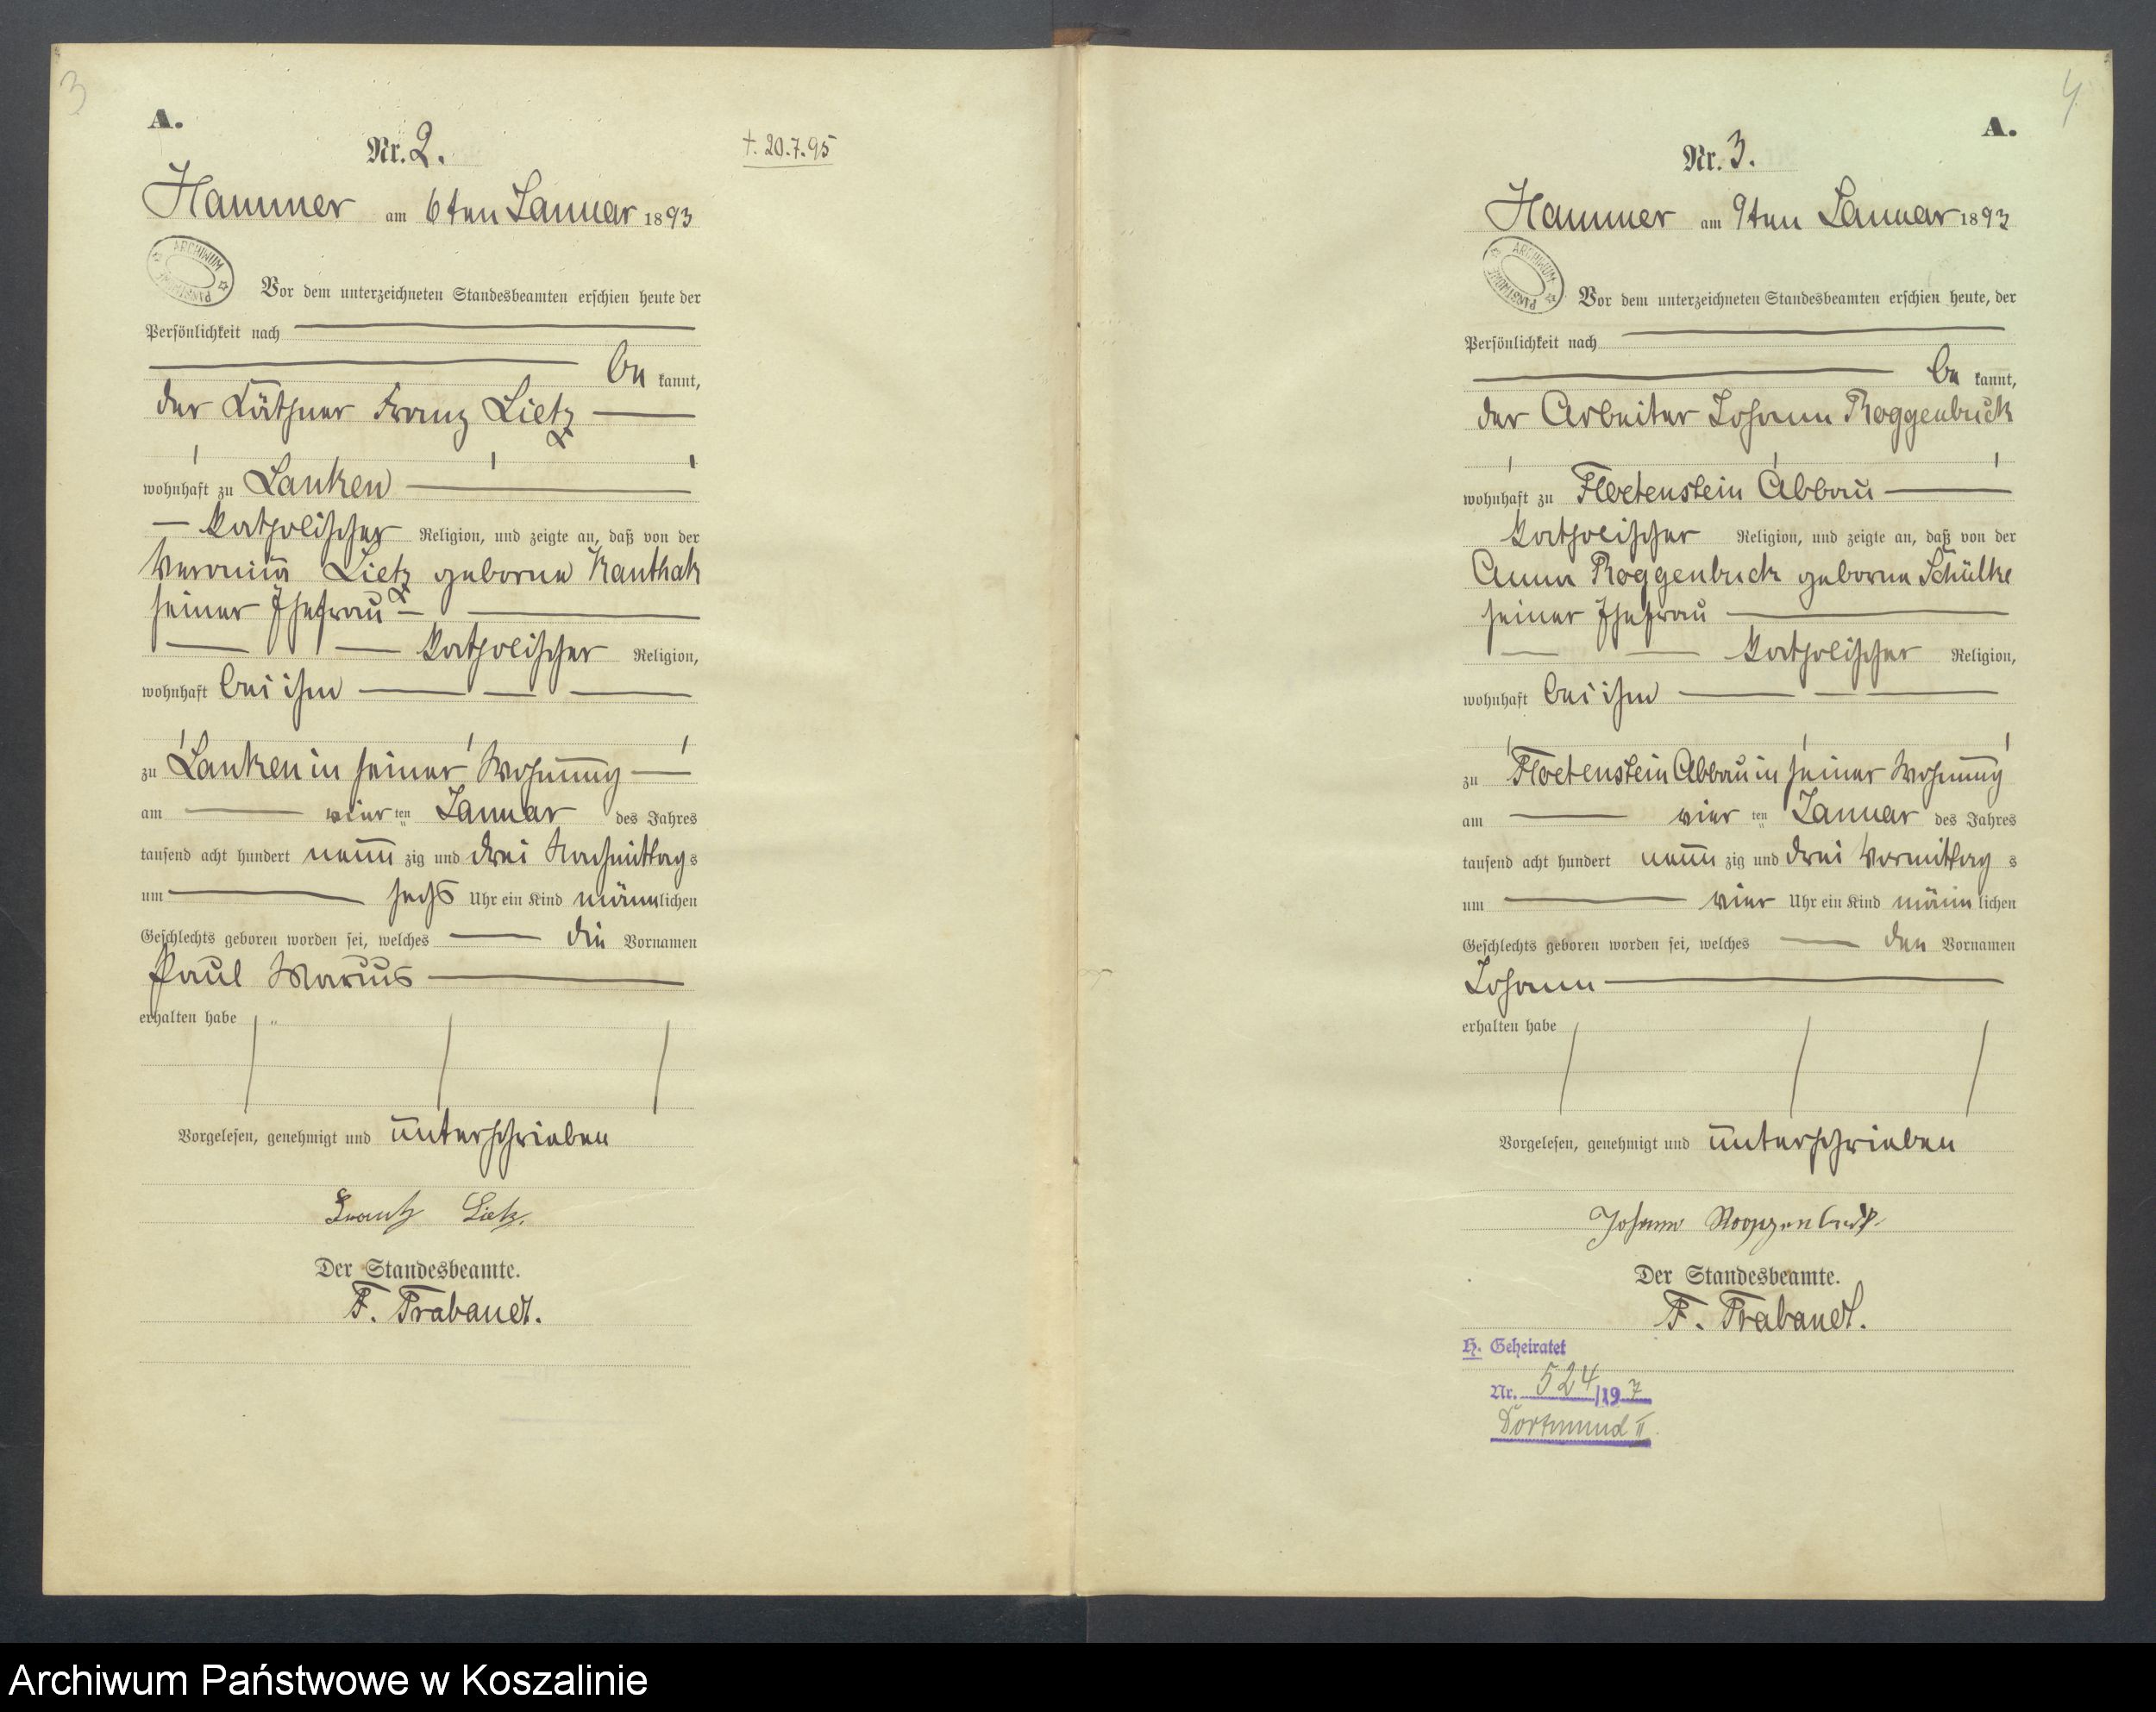 3
A.
Nr. 2.
†. 20.7.95
Hammer am 6ten Januar 1893
ARCHIWUM PAŃSTWOWE
Vor dem unterzeichneten Standesbeamten erschien heute der
Persönlichkeit nach
be kannt,
der Käthner Franz Lietz
wohnhaft zu Lanken
katholischer Religion, und zeigte an, daß von der
Veronica Lietz geborne Kanthak
seiner Ehefrau
katholischer Religion,
wohnhaft bei ihm
zu Lanken in seiner Wohnung
am vier ten Januar des Jahres
tausend acht hundert neun zig und drei Nachmittag s
um sechs Uhr ein Kind männlichen
Geschlechts geboren worden sei, welches die Vornamen
Paul Marius
erhalten habe
Vorgelesen, genehmigt und unterschrieben
Frantz Lietz.
Der Standesbeamte.
F. Trabandt.
4
A.
Nr. 3.
Hammer am 9ten Januar 1893
ARCHIWUM PAŃSTWOWE
Vor dem unterzeichneten Standesbeamten erschien heute, der
Persönlichkeit nach
be kannt,
der Arbeiter Johann Roggenbuck
wohnhaft zu Floetenstein Abbau
katholischer Religion, und zeigte an, daß von der
Anna Roggenbuck geborne Schülke
seiner Ehefrau
katholischer Religion,
wohnhaft bei ihm
zu Floetenstein Abbau in seiner Wohnung
am vier ten Januar des Jahres
tausend acht hundert neun zig und drei Vormittag s
um vier Uhr ein Kind männlichen
Geschlechts geboren worden sei, welches den Vornamen
Johann
erhalten habe
Vorgelesen, genehmigt und unterschrieben
Johann Roggenbuck
Der Standesbeamte.
F. Trabandt.
H. Geheiratet
Nr. 524/19 7
Dortmund II
Archiwum Państwowe w Koszalinie